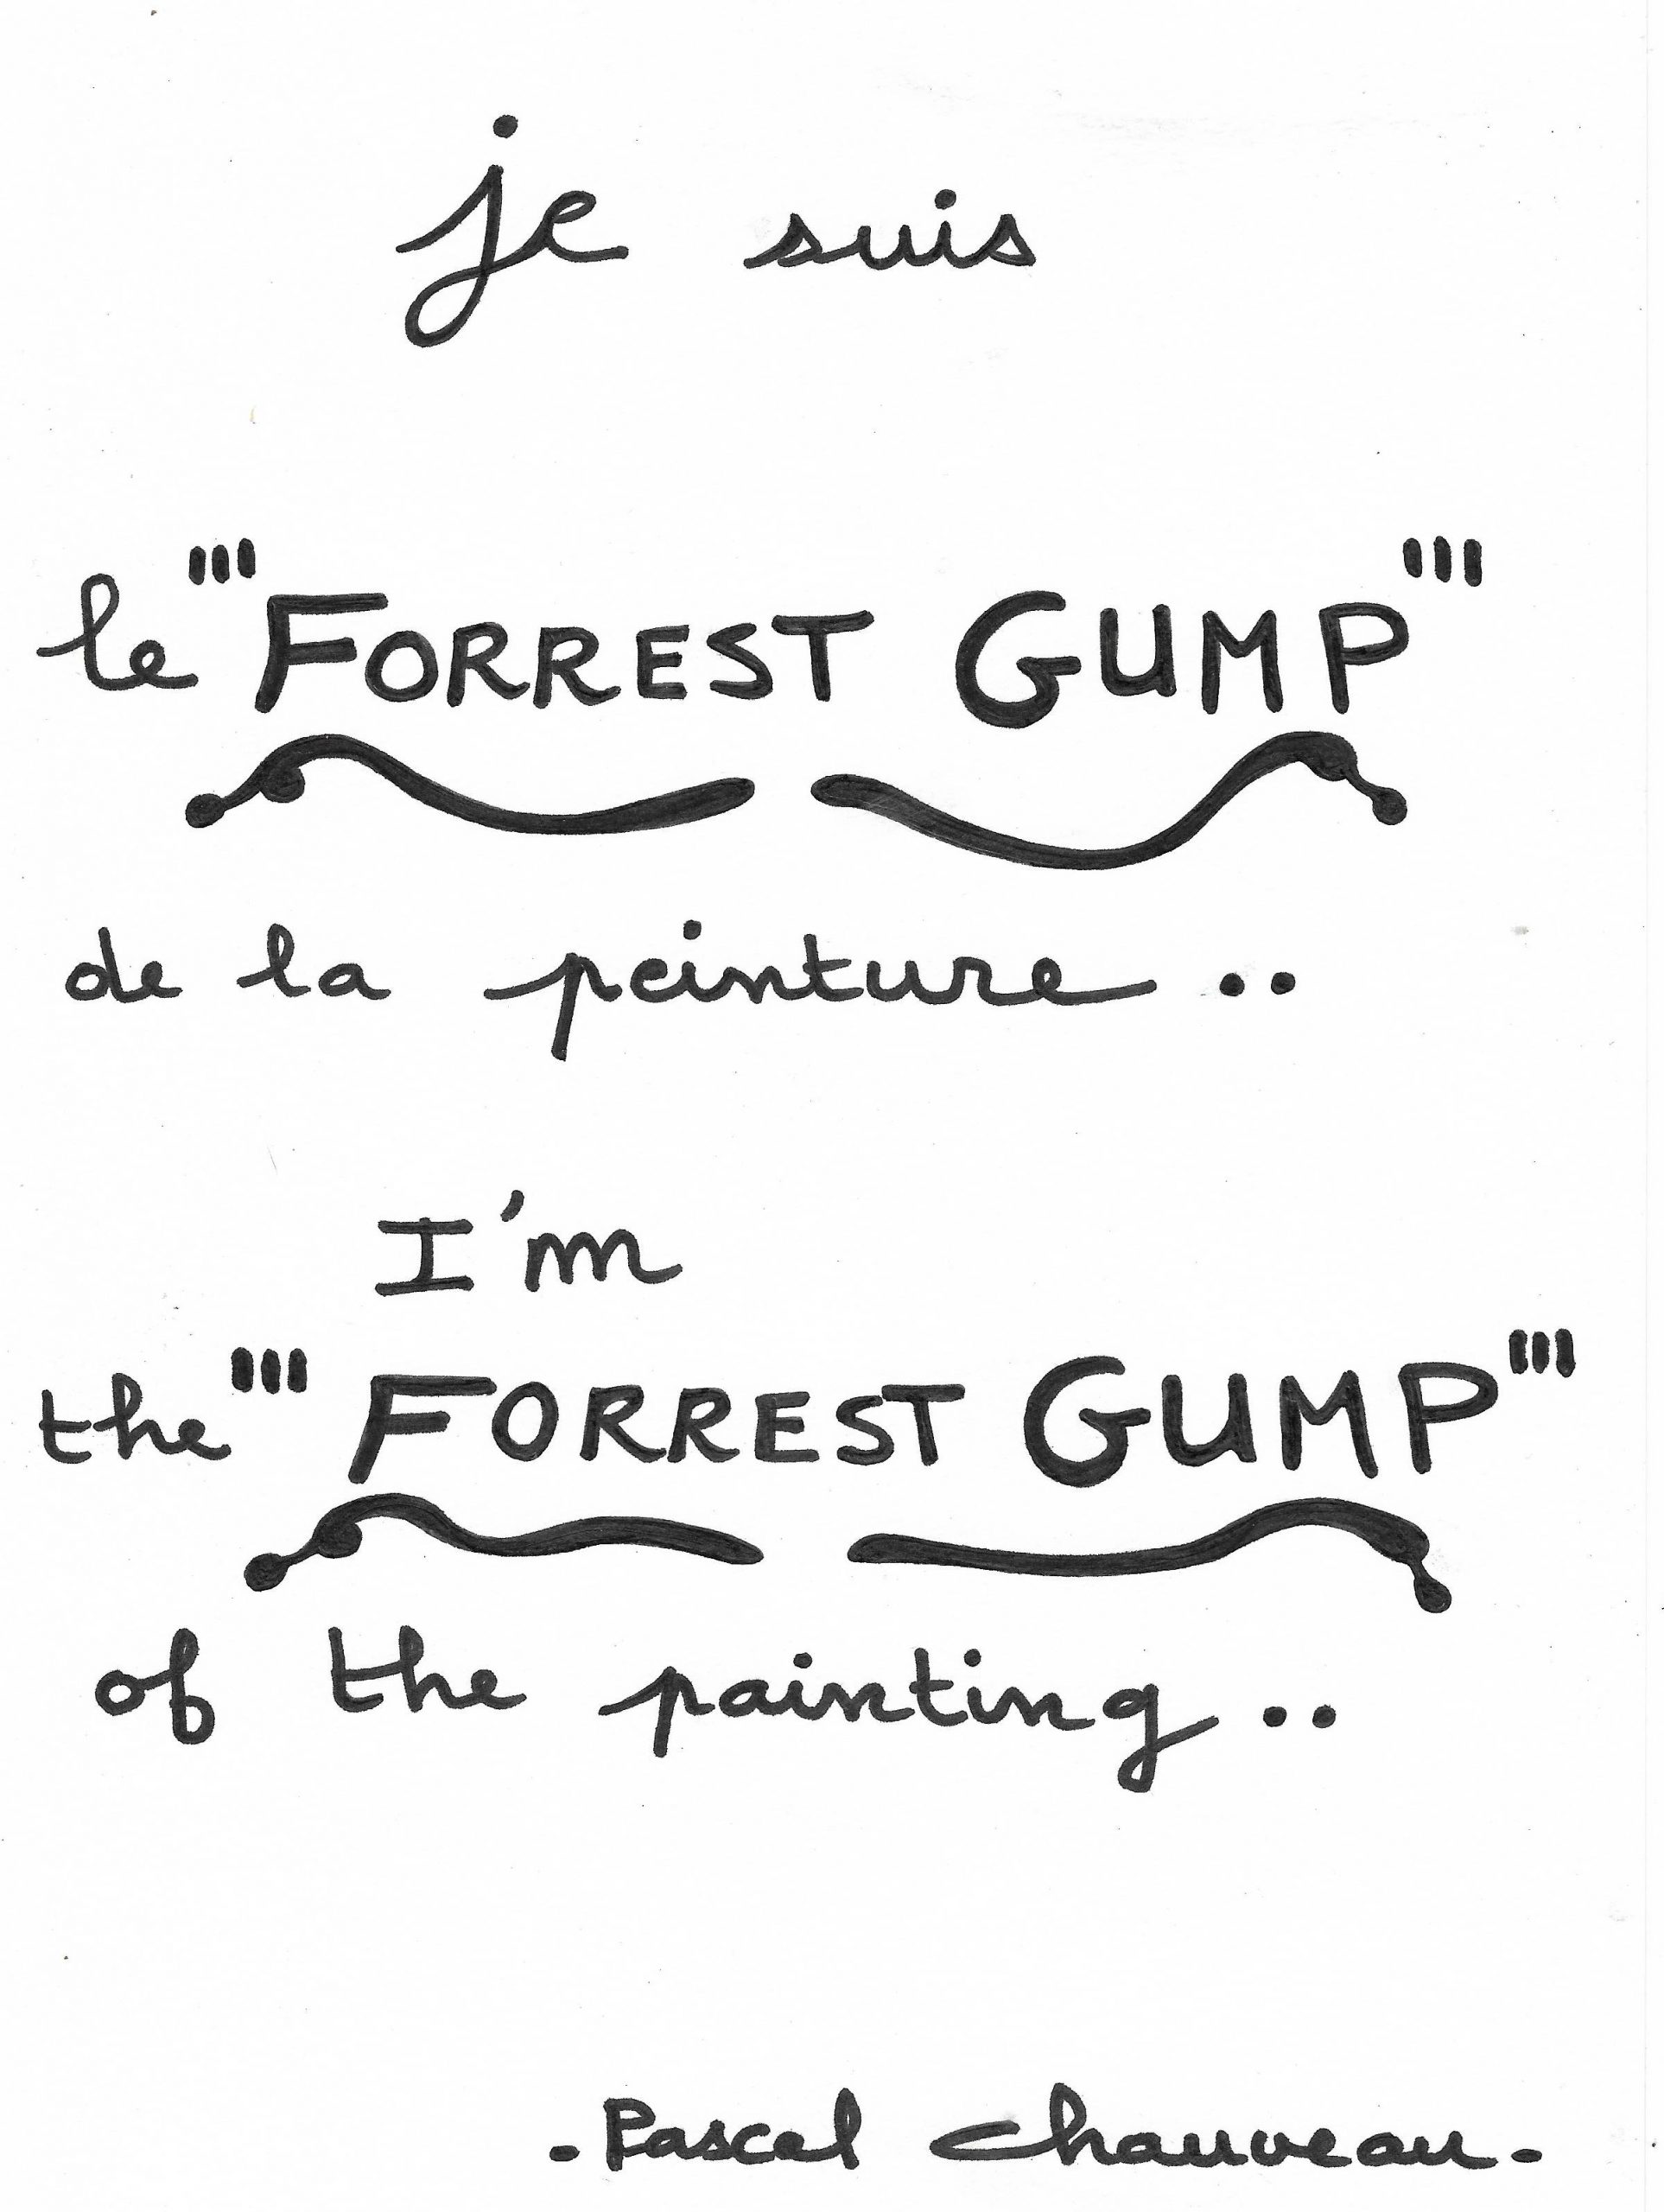 je suis
le "'FORREST GUMP"'
de la peinture..
I'm
the "'FORREST GUMP"'
of the painting..
-Pascal chauveau-